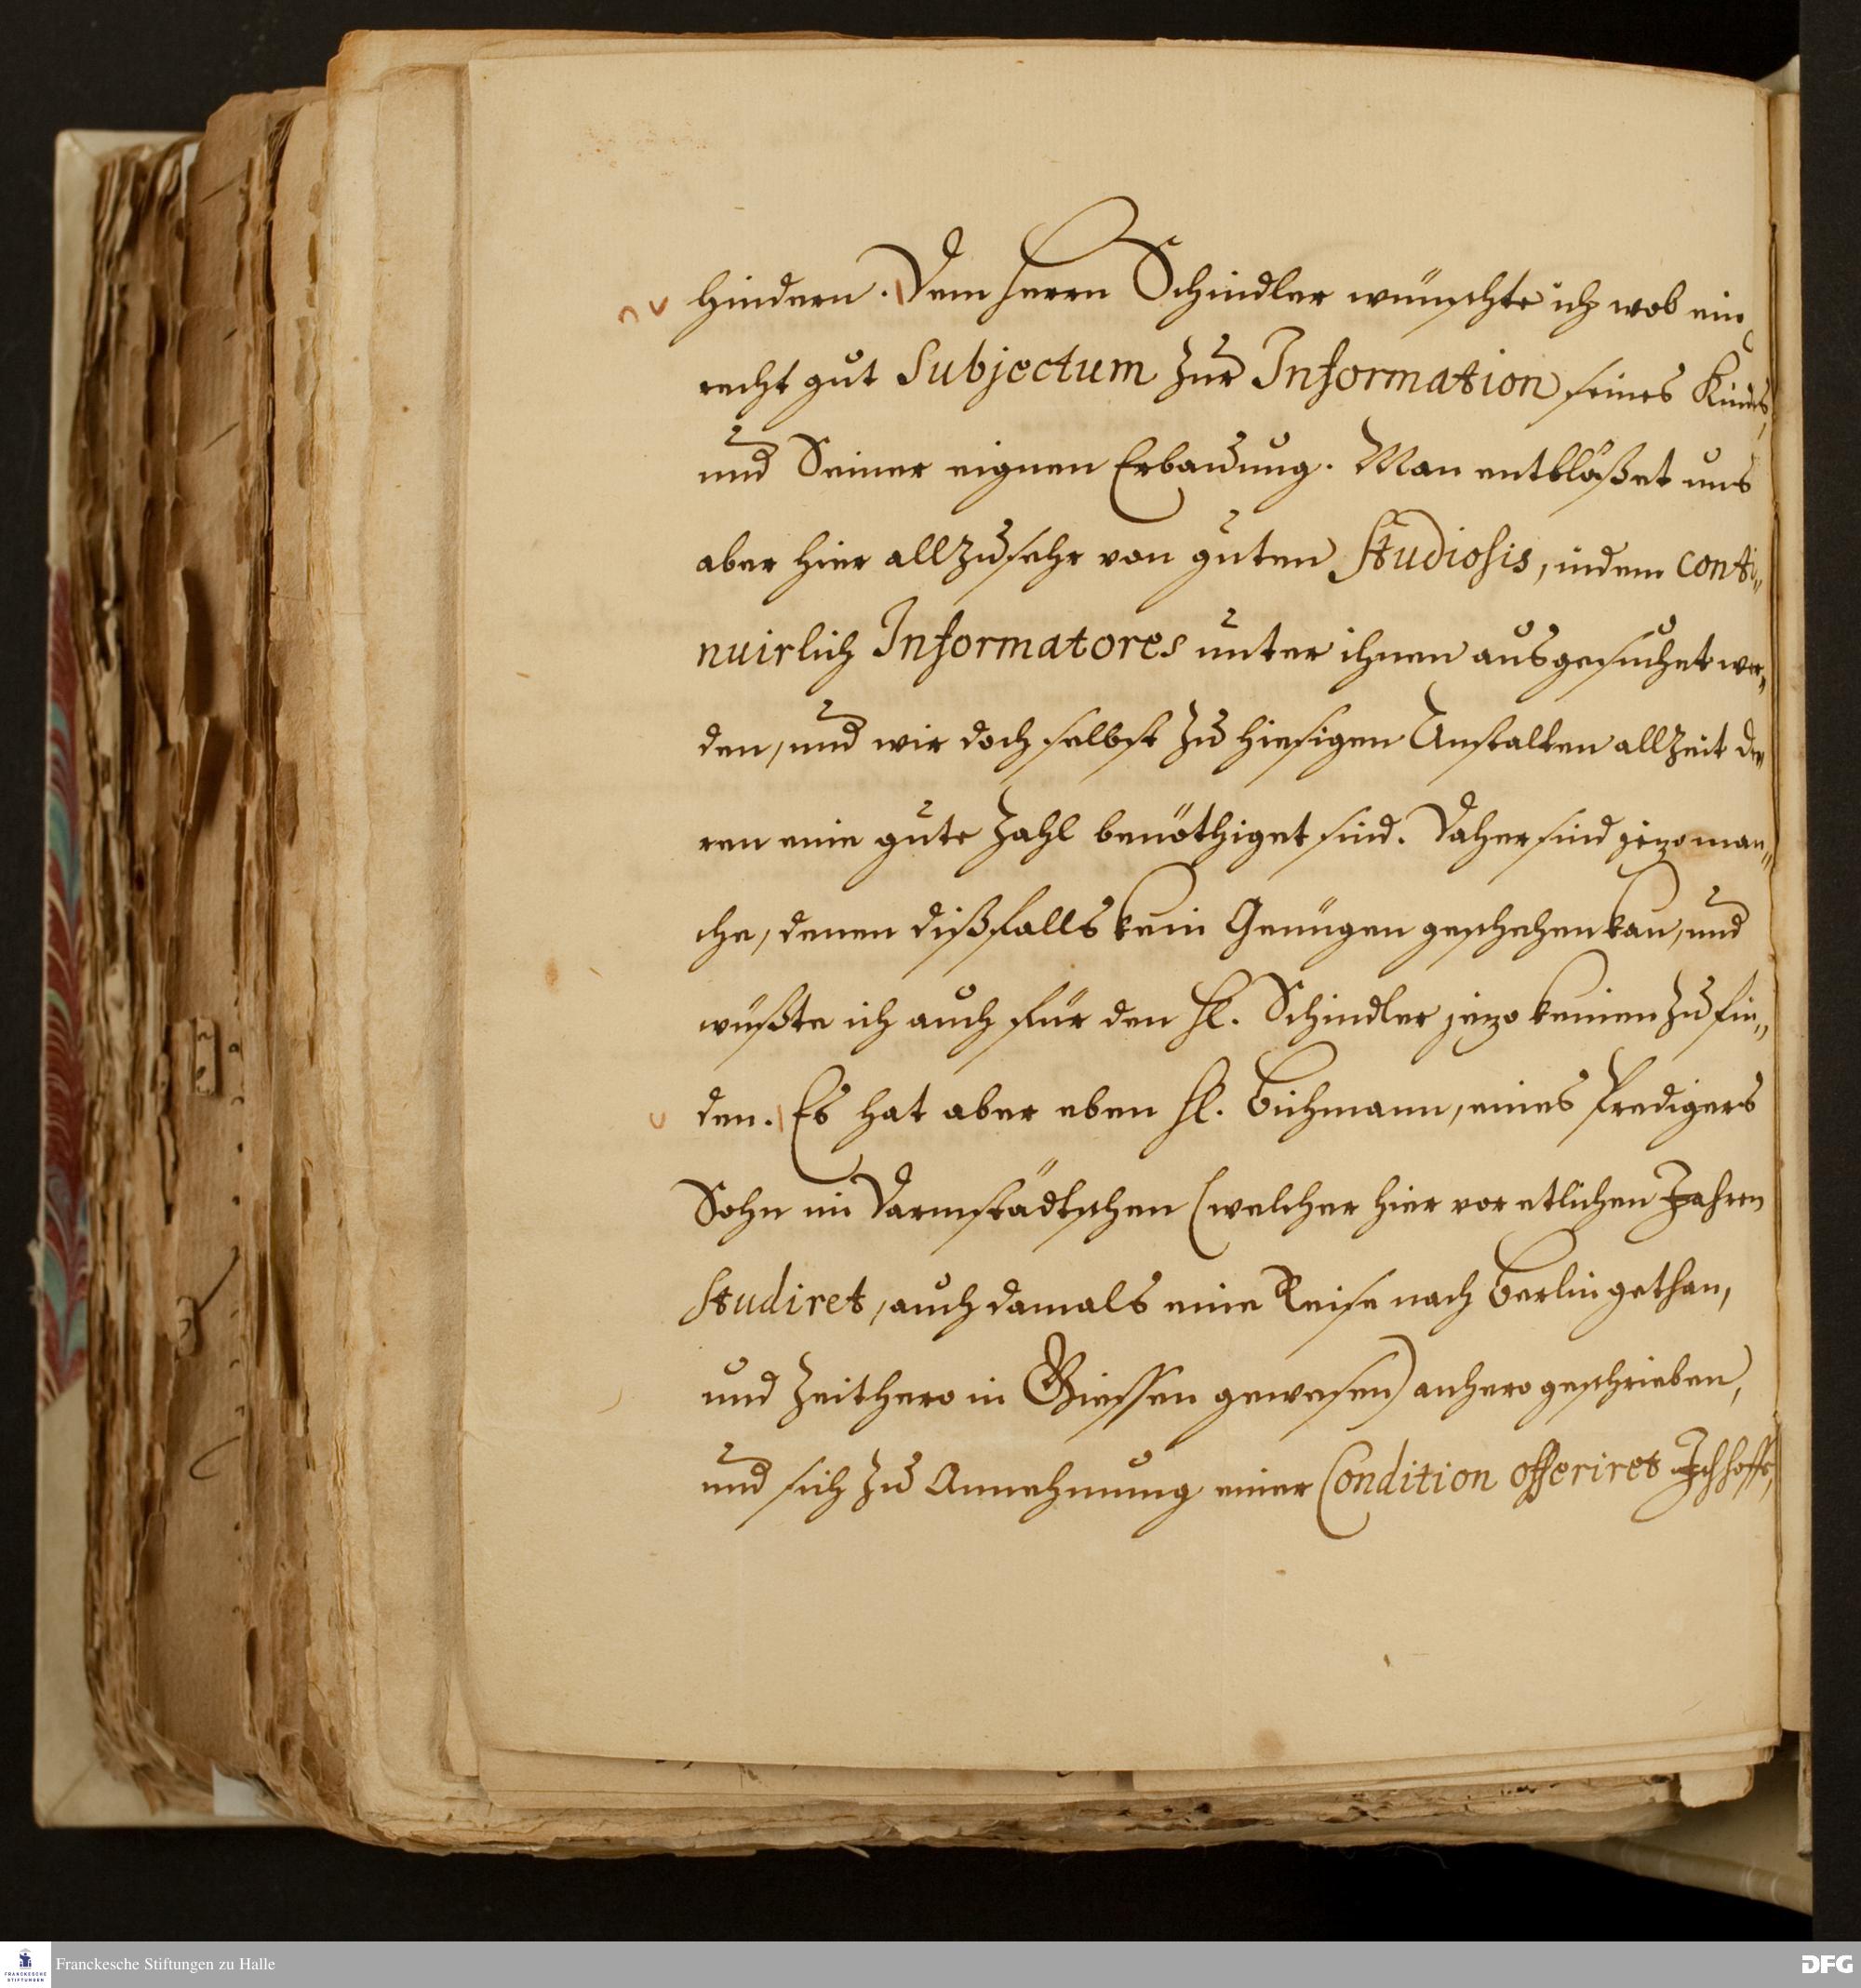 hindern. Dem Herrn Schindler wünschte ich wol ein
recht gut Subjectum zur Information seines Kindes,
und Seiner eignen Erbauung. Man entblößet uns
aber hier allzusehr von guten Studiosis, indem conti-
nuirlich Informatores unter ihnen ausgesuchet wer-
den, und wir doch selbst zu hiesigen Anstalten allzeit de-
ren eine gute Zahl benöthiget sind. Daher sind jezo man-
che, denen dißfalls kein Genügen geschehen kan, und
wüßte ich auch für den H. Schindler jezo keinen zu fin-
den. Es hat aber eben H. Bichmann, eines Predigers
Sohn im Darmstädtschen (welcher hier vor etlichen Jahren
studiret, auch damals eine Reise nach Berlin gethan,
und zeithero in Giessen gewesen) anhero geschrieben,
und sich zu Annehmung einer Condition offeriret Ich hoffe,
Franckesche Stiftungen zu Halle
FRANCKESCHE
STIFTUNGEN
DFG